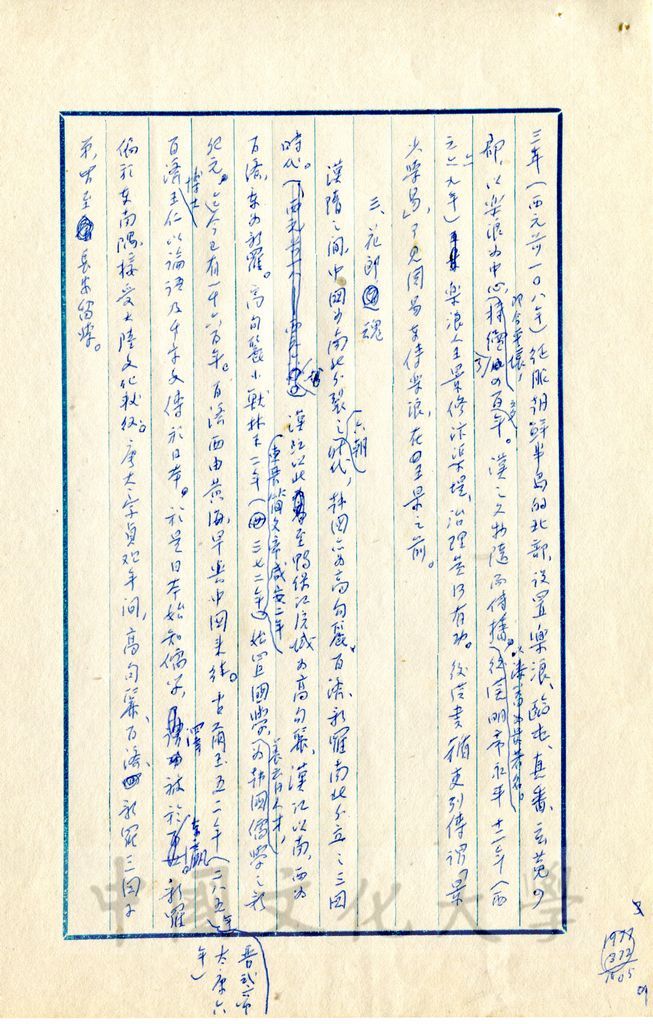 三年(西元前一〇八年)征服朝鮮半島的北部,設置樂浪、臨屯、真番、玄菟四
郡,以樂浪為中心,持續四百年。漢之文物隨而傳播。後漢明帝永平十二年(西
元六九年)樂浪人王景修汴渠堤,治理甚有功。後漢書循吏列傳謂「景
少學易」,可見周易東傳樂浪,在王景之前。
三、花郎魂
漢隋之間,中國為南北分裂之六朝時代,韓國亦為高句麗、百濟、新羅南北分立之三國
時代。漢江以北至鴨綠江流域為高句麗,漢江以南,西為
百濟,東為新羅。高句麗小獸林王二年(東晉簡文帝咸安二年 西元三七二年)始置國學,養育人才,為韓國儒學之新
紀元。迄今已有一千六百年。百濟西由黃海,早與中國來往。古爾王五二年(二八五年 晉武帝太康六年)
百濟博士王仁以論語及千字文傳於日本。於是日本始知儒學,澤被於東瀛。新羅
偏於東南隅,接受大陸文化較後。唐太宗貞觀年間,高句麗、百濟、新羅三國子
弟,曾至長安留學。
中國文化大學
1977
372
1605